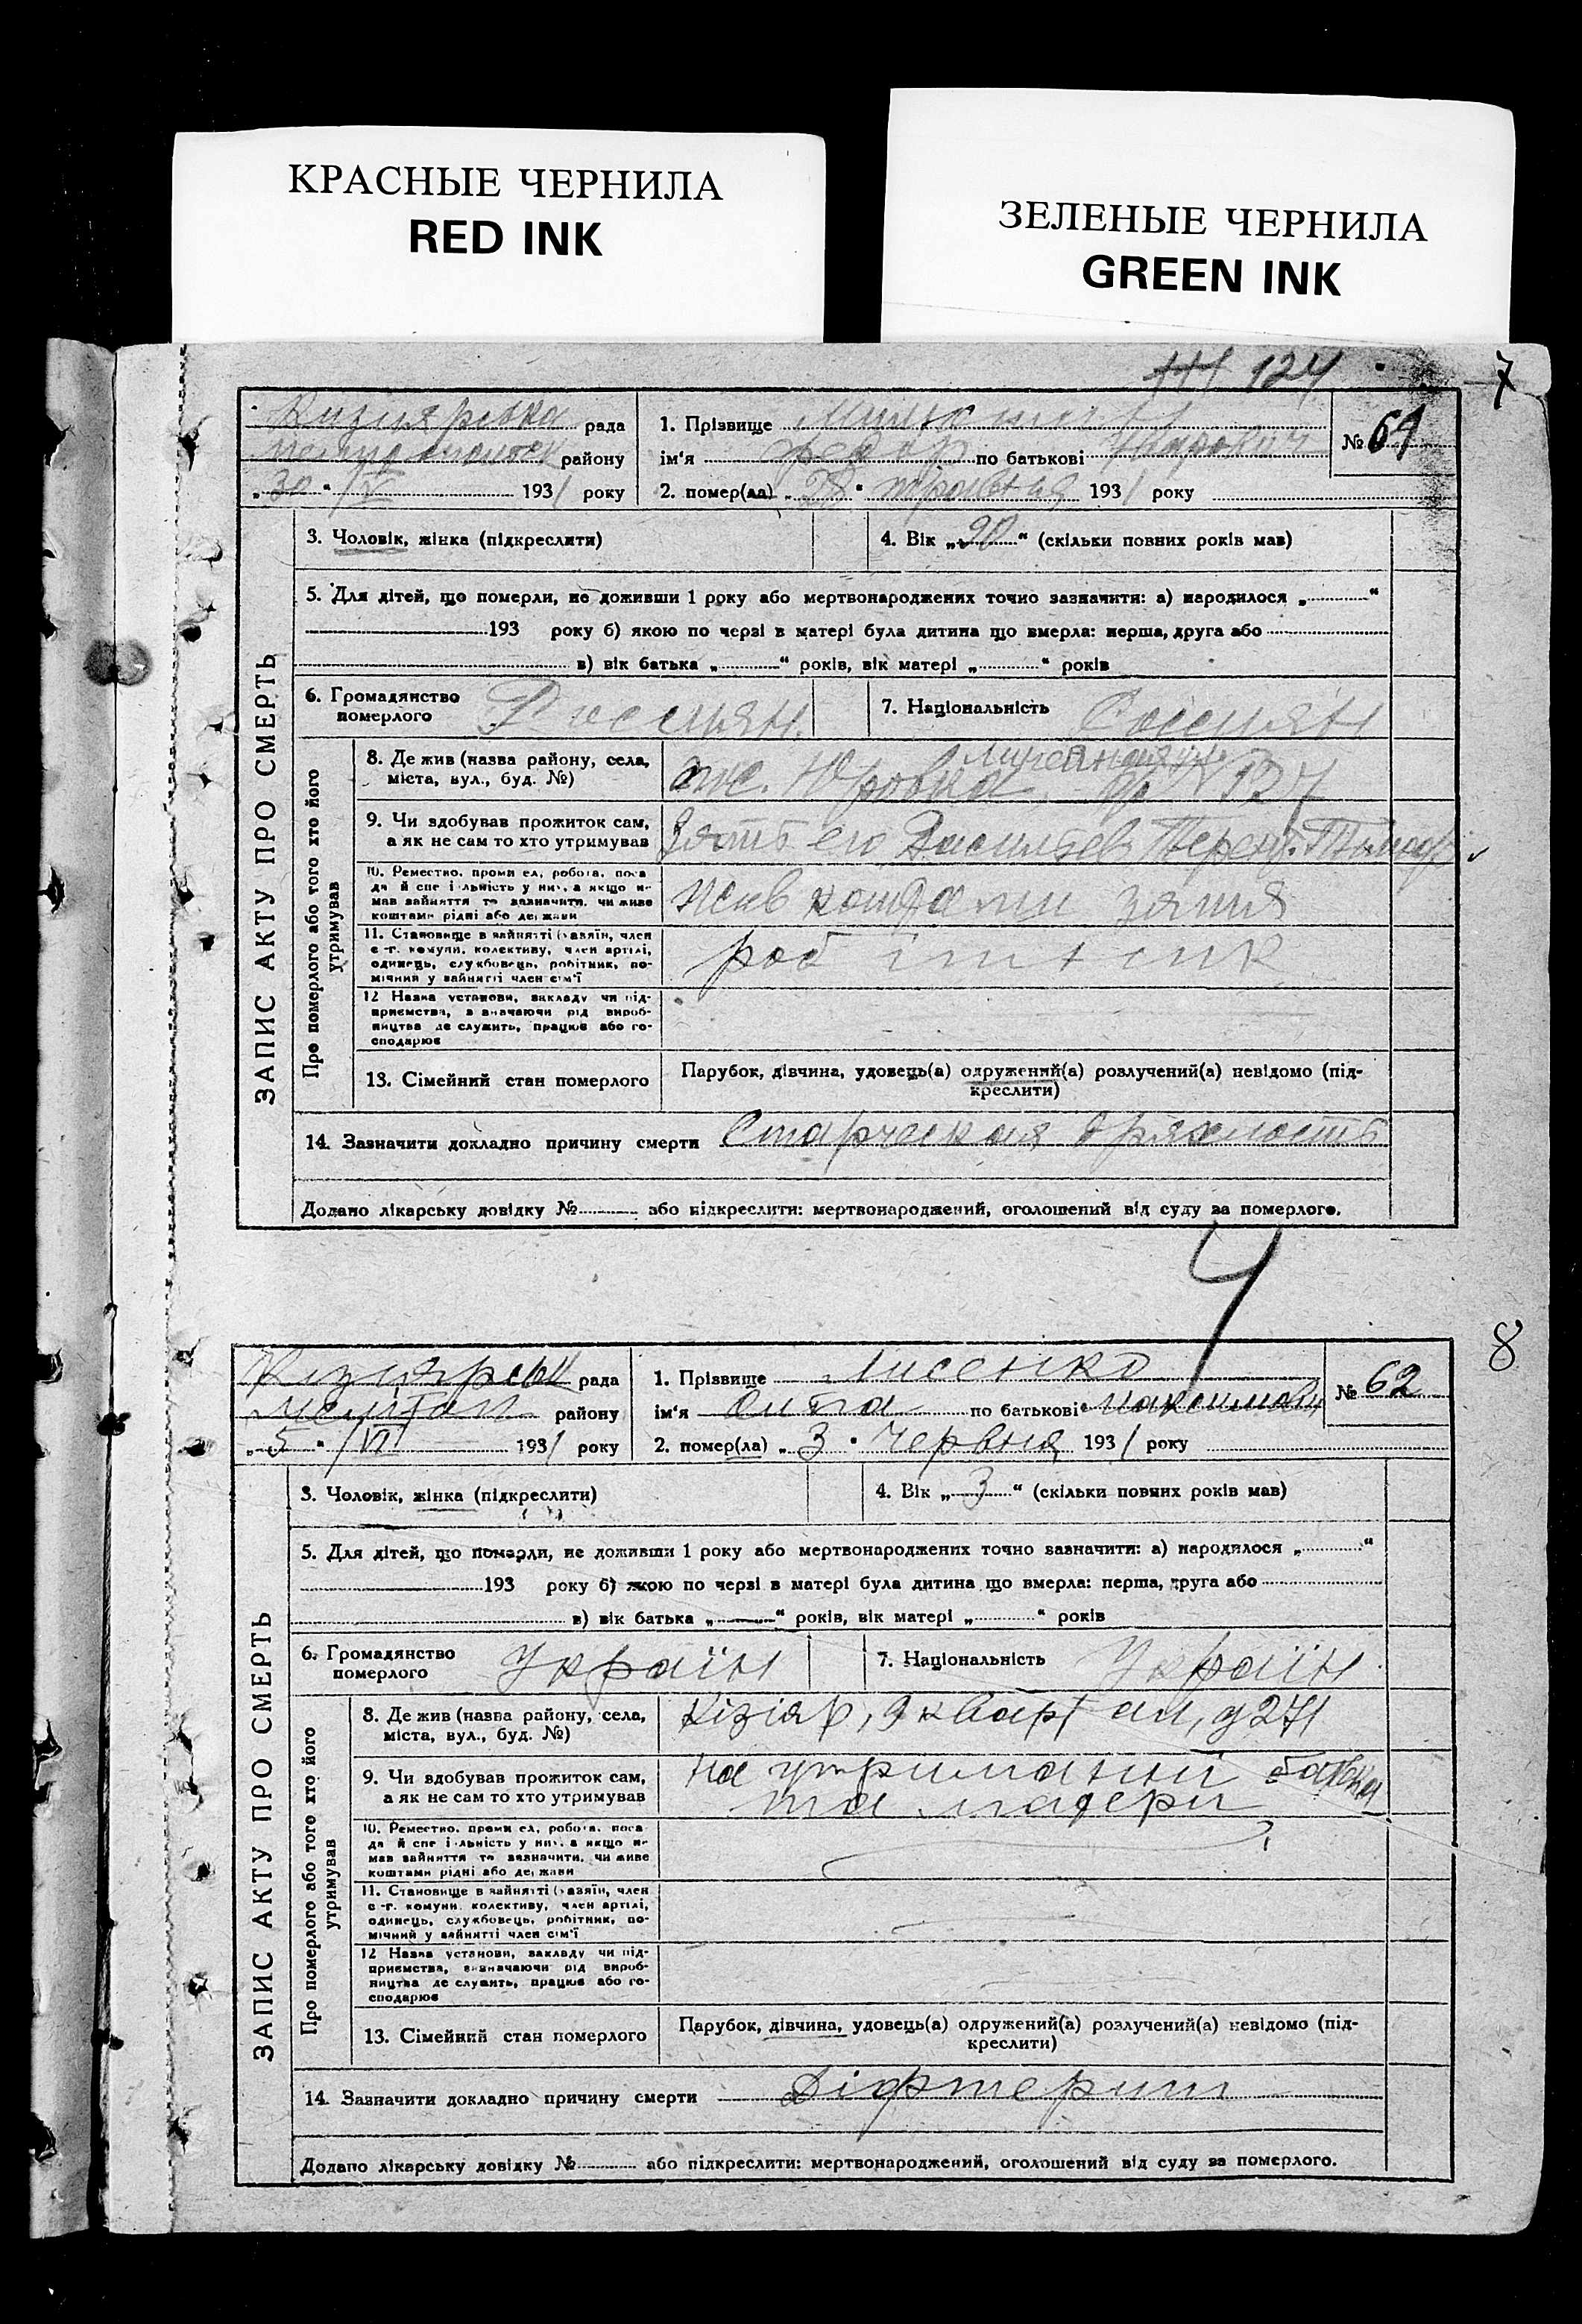 КРАСНЫЕ ЧЕРНИЛА
RED INK
ЗЕЛЕНЫЕ ЧЕРНИЛА
GREEN INK
124
7
Кизиярівка рада
району
„30“ /V 1931 року
1. Прізвище
ім'я Федор по батькові
2. помер(ла) „28“ травня 1931 року
№ 61
ЗАПИС АКТУ ПРО СМЕРТЬ
3. Чоловік, жінка (підкреслити)
4. Вік „90“ (скільки повних років мав)
5. Для дітей, що померли, не доживши 1 року або мертвонароджених точно зазначити: а) народилося „ “
193 року б) якою по черзі в матері була дитина що вмерла: перша, друга або
в) вік батька „ “ років, вік матері „ “ років
6. Громадянство
померлого Россиян.
7. Національність Россиян
Про померлого або того хто його
утримував
8. Де жив (назва району, села,
міста, вул., буд. №)
9. Чи здобував прожиток сам,
а як не сам то хто утримував
Зять его Васильев
10. Ремество, промисел, робота, поса
да й спеціальність у них, а якщо не
мав зайняття то зазначити, чи живе
коштами рідні або держави
жив коштами зятя
11. Становище в зайнятті (хазяїн, член
с.-г. комуни, колективу, член артілі,
одинець, службовець, робітник, по-
мічний у зайнятті член сім'ї
робітник
12 Назва установи, закладу чи під-
приємства, зазначаючи рід вироб-
ництва де служить, працює або го-
сподарює
13. Сімейний стан померлого
Парубок, дівчина, удовець(а) одружений(а) розлучений(а) невідомо (під-
креслити)
14. Зазначити докладно причину смерти Старческая дряхлость
Додано лікарську довідку № або підкреслити: мертвонароджений, оголошений від суду за померлого.
8
рада
району
„5“ /VI 1931 року
1. Прізвище Лисенко
ім'я Ольга по батькові
2. помер(ла) „3“ червня 1931 року
№ 62
ЗАПИС АКТУ ПРО СМЕРТЬ
3. Чоловік, жінка (підкреслити)
4. Вік „3“ (скільки повних років мав)
5. Для дітей, що померли, не доживши 1 року або мертвонароджених точно зазначити: а) народилося „ “
193 року б) якою по черзі в матері була дитина що вмерла: перша, друга або
в) вік батька „ “ років, вік матері „ “ років
6. Громадянство
померлого Україн
7. Національність Україн
Про померлого або того хто його
утримував
8. Де жив (назва району, села,
міста, вул., буд. №)
Кізіяр, 9 квартал, д 271
9. Чи здобував прожиток сам,
а як не сам то хто утримував
на утриманні батька
та матери
10. Ремество, промисел, робота, поса
да й спеціальність у них, а якщо не
мав зайняття то зазначити, чи живе
коштами рідні або держави
11. Становище в зайнятті (хазяїн, член
с.-г. комуни, колективу, член артілі,
одинець, службовець, робітник, по-
мічний у зайнятті член сім'ї
12 Назва установи, закладу чи під-
приємства, зазначаючи рід вироб-
ництва де служить, працює або го-
сподарює
13. Сімейний стан померлого
Парубок, дівчина, удовець(а) одружений(а) розлучений(а) невідомо (під-
креслити)
14. Зазначити докладно причину смерти Діфтерит
Додано лікарську довідку № або підкреслити: мертвонароджений, оголошений від суду за померлого.